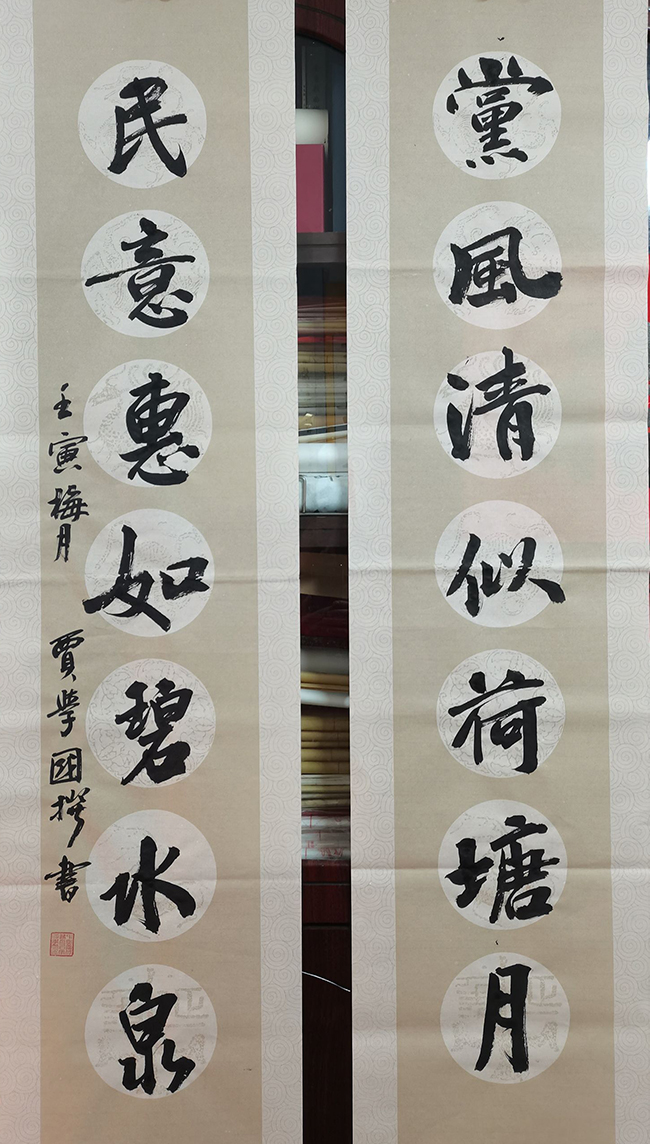 黨風清似荷塘月
民意惠如碧水泉
壬寅梅月 賈學國撰書